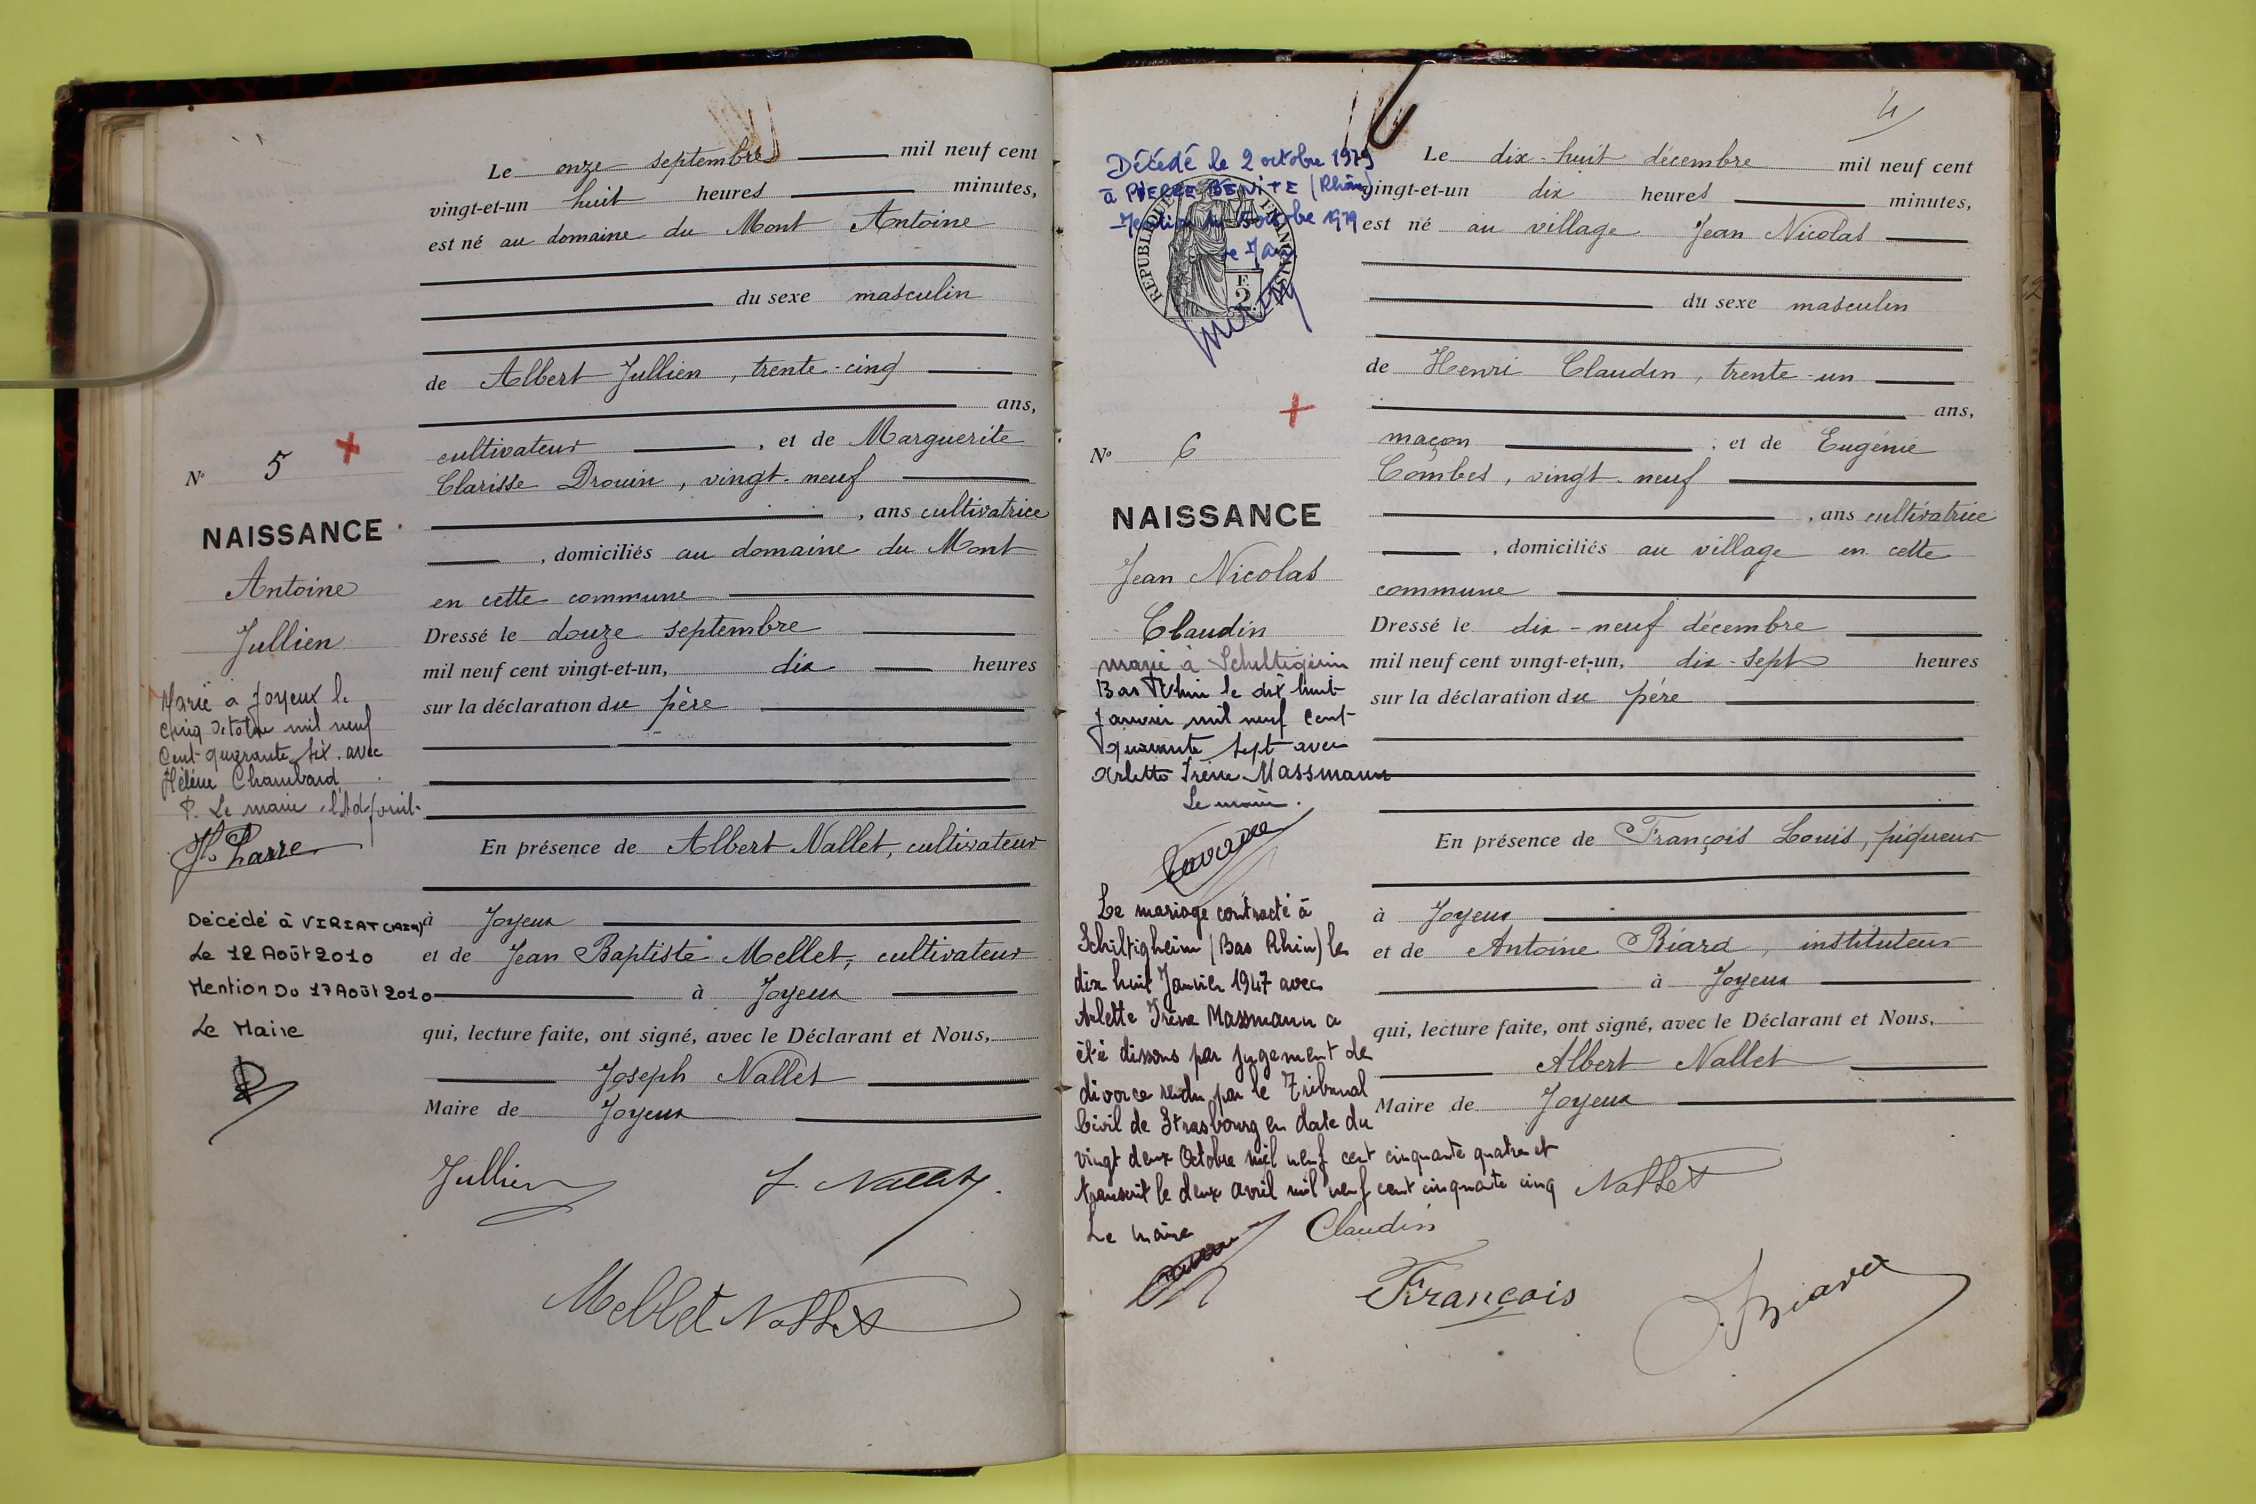 Le onze septembre mil neuf cent
vingt-et-un huit heures minutes,
est né au domaine du Mont Antoine
du sexe masculin
de Albert Jullien, trente-cinq
ans,
cultivateur, et de Marguerite
Clarisse Drouin, vingt-neuf
, ans cultivatrice
, domiciliés au domaine du Mont
en cette commune
Dressé le douze septembre
mil neuf cent vingt-et-un, dix heures
sur la déclaration du père
En présence de Albert Nallet, cultivateur
à Joyeux
et de Jean Baptiste Mellet, cultivateur
à Joyeux
qui, lecture faite, ont signé, avec le Déclarant et Nous,
Joseph Nallet
Maire de Joyeux
Jullien J. Nallet
Mellet Nallet
No 5
NAISSANCE
Antoine
Jullien
Marié à Joyeux le
cinq octobre mil neuf
cent quarante six. avec
Hélène Chambard
P. Le maire
Décédé à VIRIAT (AIN)
Le 12 Août 2010
Mention Du 17 Août 2010
Le Maire
4
Décédé le 2 octobre 1979
à PIERRE BENITE (Rhône)
octobre 1979
RÉPUBLIQUE FRANÇAISE
2F
Le dix-huit décembre mil neuf cent
vingt-et-un dix heures minutes,
est né au village Jean Nicolas
du sexe masculin
de Henri Claudin, trente-un
ans,
maçon, et de Eugénie
Combes, vingt-neuf
, ans cultivatrice
, domiciliés au village en cette
commune
Dressé le dix-neuf décembre
mil neuf cent vingt-et-un, dix-sept heures
sur la déclaration du père
En présence de François Louis, piqueur
à Joyeux
et de Antoine Biard, instituteur
à Joyeux
qui, lecture faite, ont signé, avec le Déclarant et Nous,
Albert Nallet
Maire de Joyeux
Nallet
Claudin
François
Biard
No 6
NAISSANCE
Jean Nicolas
Claudin
marié à Schiltigheim
Bas Rhin le dix huit
janvier mil neuf cent
quarante sept avec
Arlette Irène Massmann
Le maire.
Le mariage contracté à
Schiltigheim (Bas Rhin) le
dix huit Janvier 1947 avec
Arlette Irène Massmann a
été dissous par jugement de
divorce rendu par le Tribunal
Civil de Strasbourg en date du
vingt deux Octobre mil neuf cent cinquante quatre et
transcrit le deux avril mil neuf cent cinquante cinq
Le maire